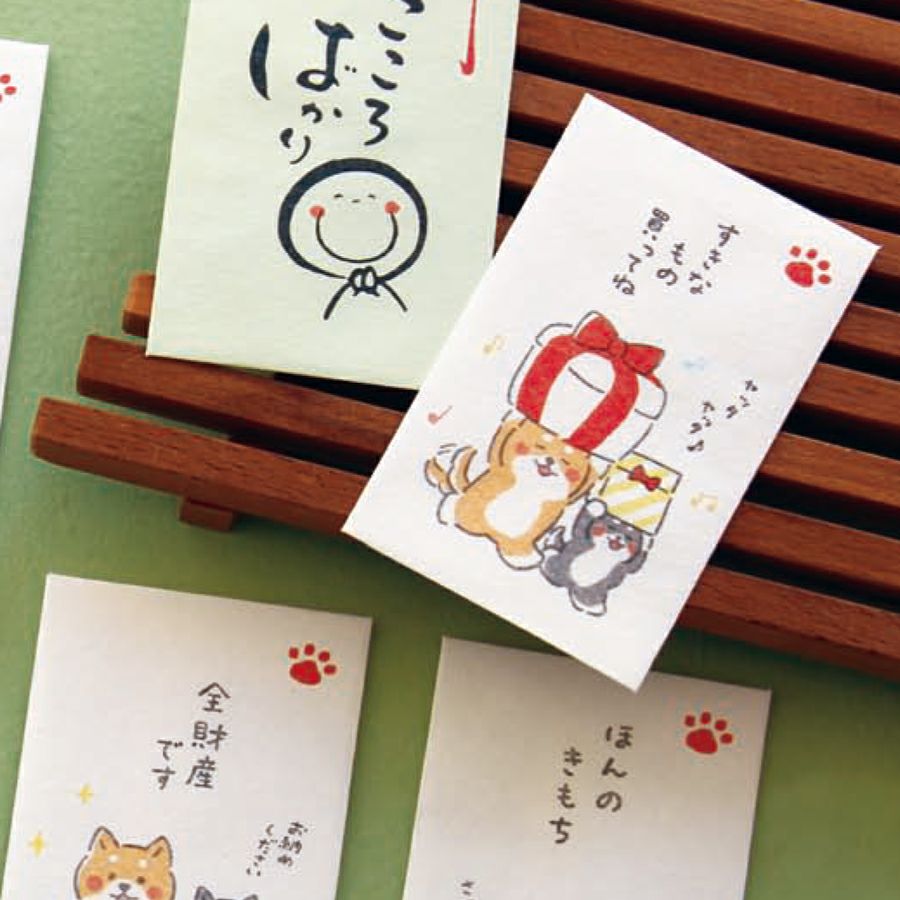 こころ
ばかり
すきな
もの
買ってね
ヤッタ
ヤッター♪
全財産
です
お納め
ください
ほんの
きもち